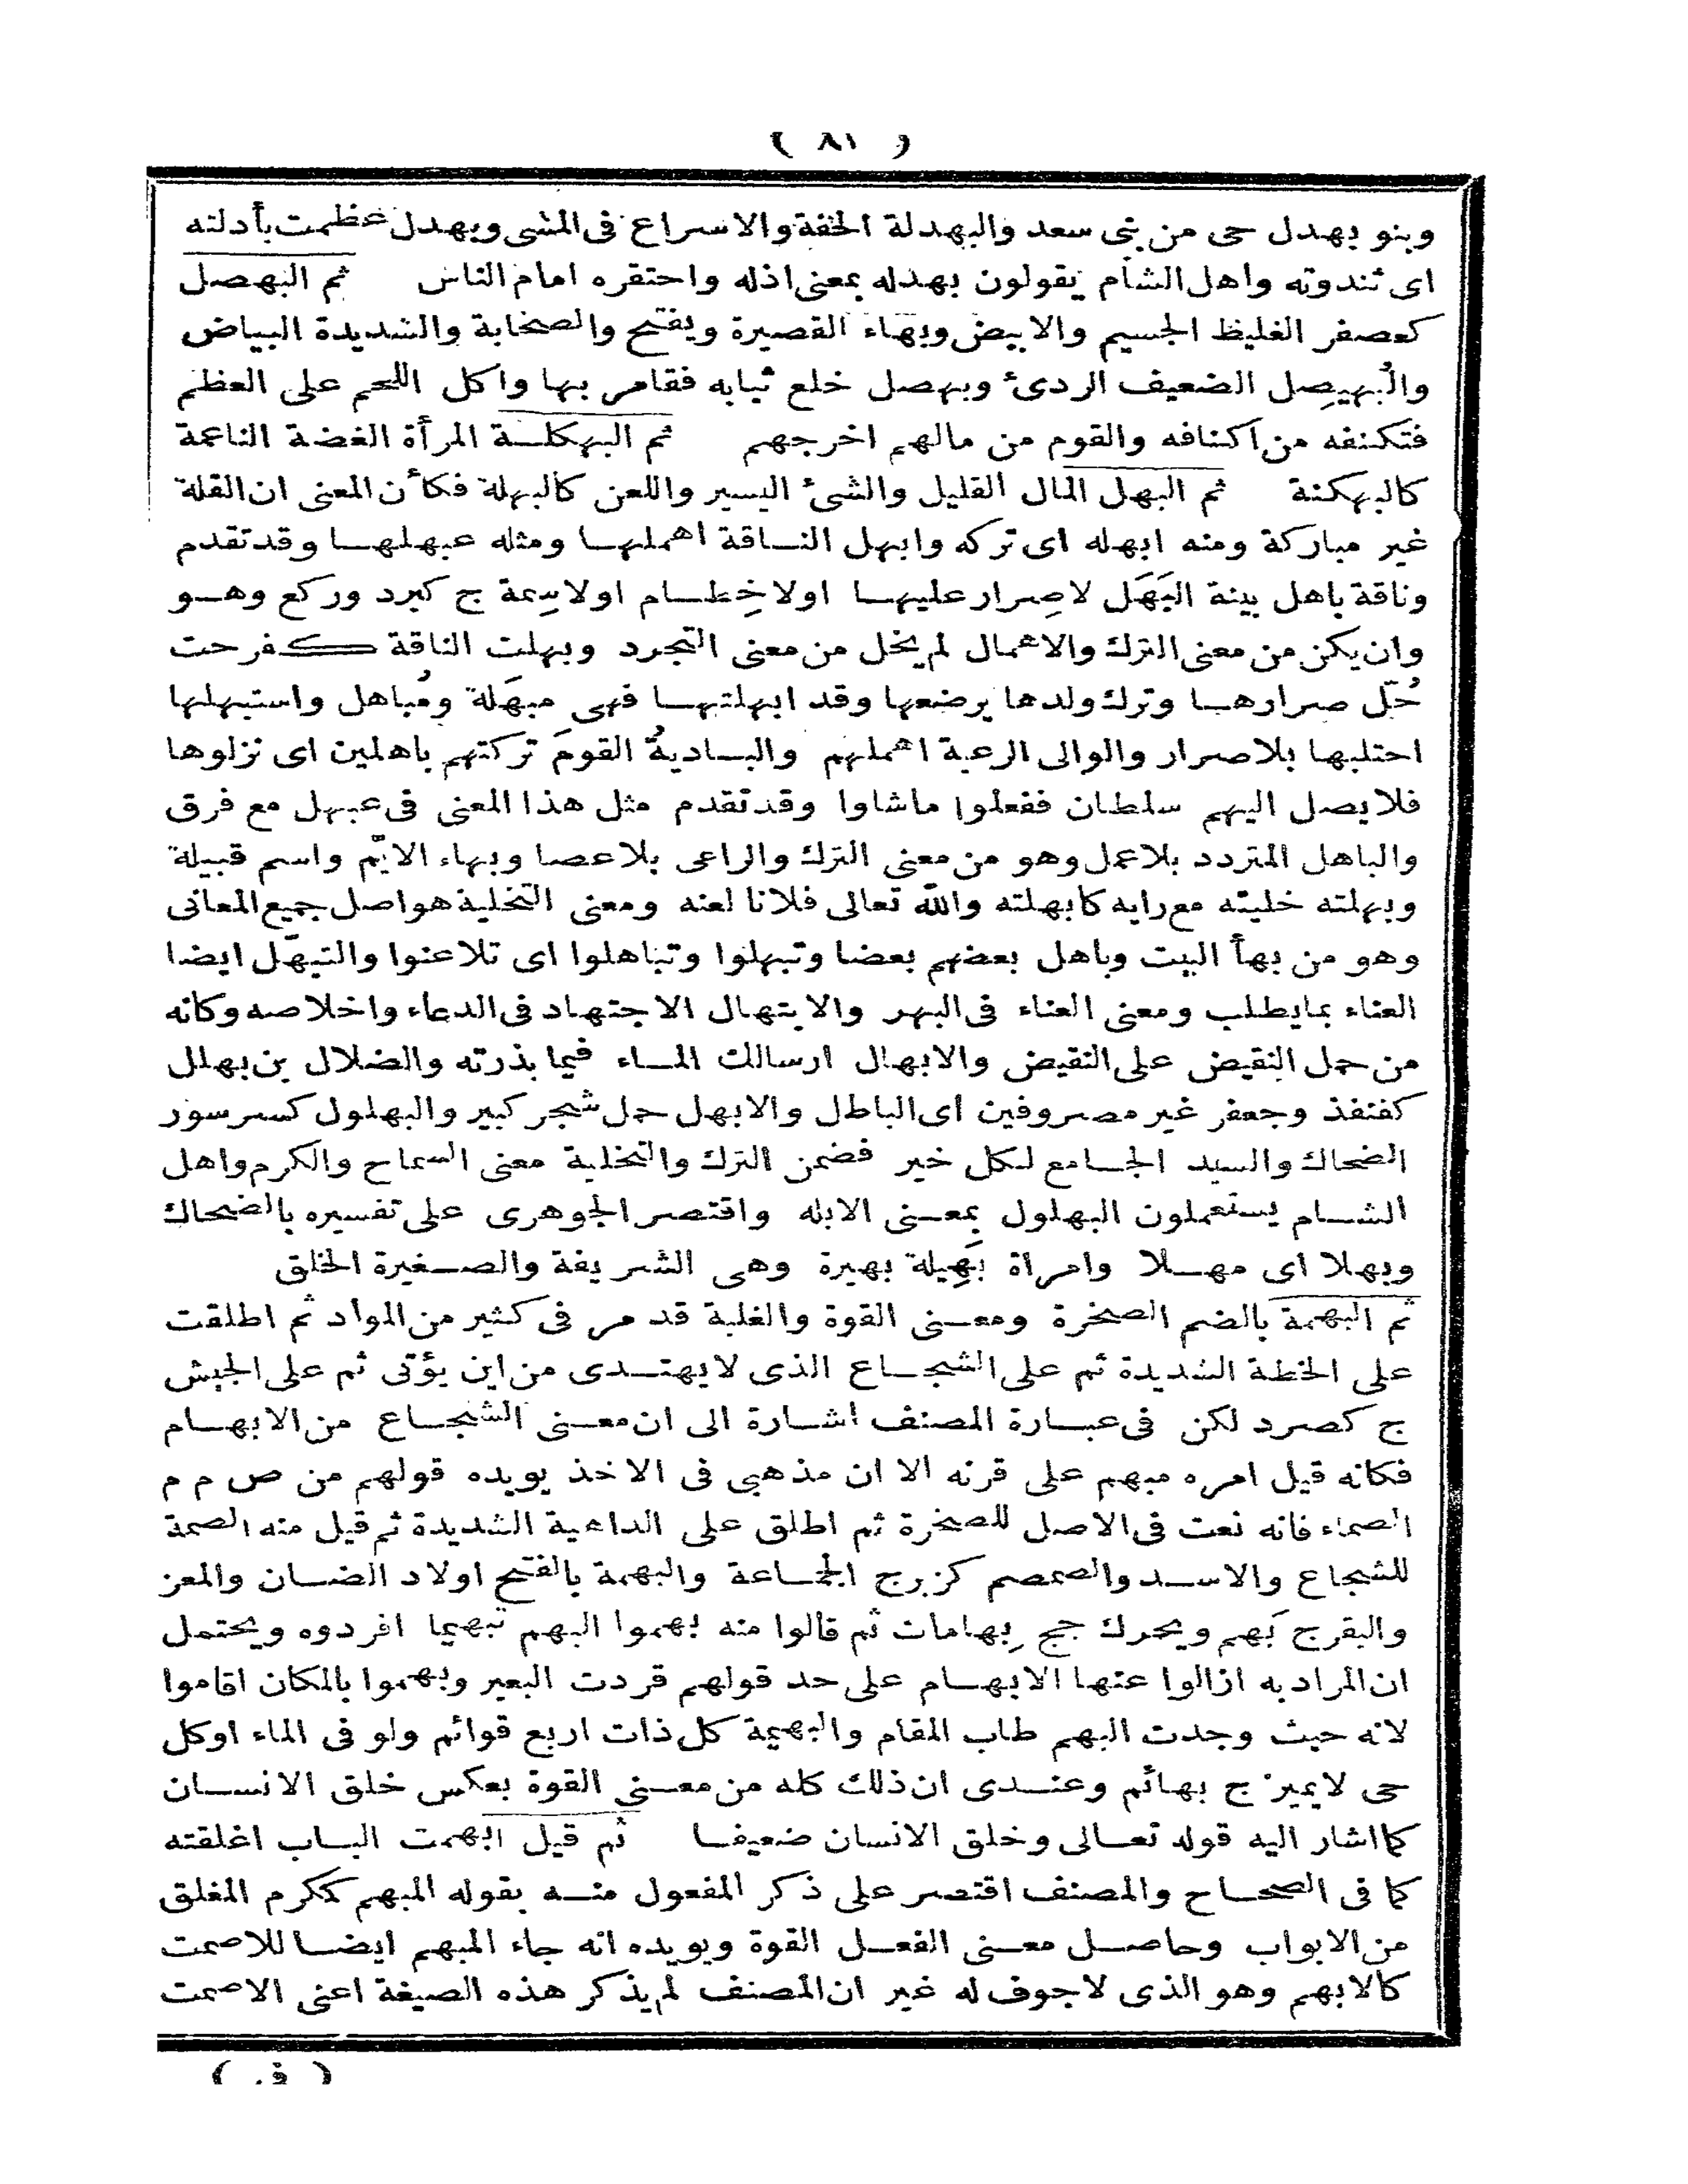 ( ٨١ )
وبنو بهدل حى من بنى سعد والبهدلة الخفة والاسراع فى المشى وبهدل عظمت بأدلته
اى ثندوته واهل الشأم يقولون بهدله بمعنى اذله واحتقره امام الناس ثم البهصل
كعصفر الغليظ الجسيم والابيض وبهاء القصيرة ويفتح والصخابة والشديدة البياض
والبُهيصِل الضعيف الردئ وبهصل خلع ثيابه فقامر بها واكل اللحم على العظم
فتكنفه من اكنافه والقوم من مالهم اخرجهم ثم البهكلة المرأة الغضة الناعمة
كالبهكنة ثم البهل المال القليل والشئ اليسير واللعن كالبهلة فكأن المعنى ان القلة
غير مباركة ومنه ابهله اى تركه وابهل الناقة اهملها ومثله عبهلها وقد تقدم
وناقة باهل بينة البَهَل لاصِرار عليها اولاخِطام اولاسِمة ج كبرد وركع وهو
وان يكن من معنى الترك والاهمال لم يخل من معنى التجرد وبهلت الناقة كفرحت
حُلّ صرارها وترك ولدها يرضعها وقد ابهلتها فهى مبهَلة ومُباهل واستبهلها
احتلبها بلاصرار والوالى الرعية اهملهم والباديةُ القومَ تركتهم باهلين اى نزلوها
فلا يصل اليهم سلطان ففعلوا ماشاوا وقد تقدم مثل هذا المعنى فى عبهل مع فرق
والباهل المتردد بلاعمل وهو من معنى الترك والراعى بلاعصا وبهاء الايّم واسم قبيلة
وبهلته خليته مع رايه كابهلته والله تعالى فلانا لعنه ومعنى التخلية هو اصل جميع المعانى
وهو من بهأ البيت وباهل بعضهم بعضا وتبهلوا وتباهلوا اى تلاعنوا والتبهّل ايضا
العناء بما يطلب ومعنى العناء فى البهر والابتهال الاجتهاد فى الدعاء واخلاصه وكانه
من حمل النقيض على النقيض والابهال ارسالك الماء فيما بذرته والضلال بن بهلل
كقنفذ وجعفر غير مصروفين اى الباطل والابهل حمل شجر كبير والبهلول كسرسور
الضحاك والسيد الجامع لكل خير فضمن الترك والتخلية معنى السماح والكرم واهل
الشام يستعملون البهلول بمعنى الابله واقتصر الجوهرى على تفسيره بالضحاك
وبهلا اى مهلا وامراة بَهِيلة بهيرة وهى الشريفة والصغيرة الخلق
ثم البهمة بالضم الصخرة ومعنى القوة والغلبة قد مر فى كثير من المواد ثم اطلقت
على الخطة الشديدة ثم على الشجاع الذى لا يهتدى من اين يؤتى ثم على الجيش
ج كصرد لكن فى عبارة المصنف اشارة الى ان معنى الشجاع من الابهام
فكانه قيل امره مبهم على قرنه الا ان مذهبى فى الاخذ يويده قولهم من ص م م
الصماء فانه نعت فى الاصل للصخرة ثم اطلق على الداهية الشديدة ثم قيل منه الصمة
للشجاع والاسد والصمصم كزبرج الجماعة والبهمة بالفتح اولاد الضان والمعز
والبقر ج بَهم ويحرك جج بِهامات ثم قالوا منه بهموا البهم تبهيما افردوه ويحتمل
ان المراد به ازالوا عنها الابهام على حد قولهم قردت البعير وبهموا بالمكان اقاموا
لانه حيث وجدت البهم طاب المقام والبهيمة كل ذات اربع قوائم ولو فى الماء او كل
حى لا يميز ج بهائم وعندى ان ذلك كله من معنى القوة بعكس خلق الانسان
كما اشار اليه قوله تعالى وخلق الانسان ضعيفا ثم قيل ابهمت الباب اغلقته
كما فى الصحاح والمصنف اقتصر على ذكر المفعول منه بقوله المبهم كمكرم المغلق
من الابواب وحاصل معنى الفعل القوة ويويده انه جاء المبهم ايضا للاصمت
كالابهم وهو الذى لاجوف له غير ان المصنف لم يذكر هذه الصيغة اعنى الاصمت